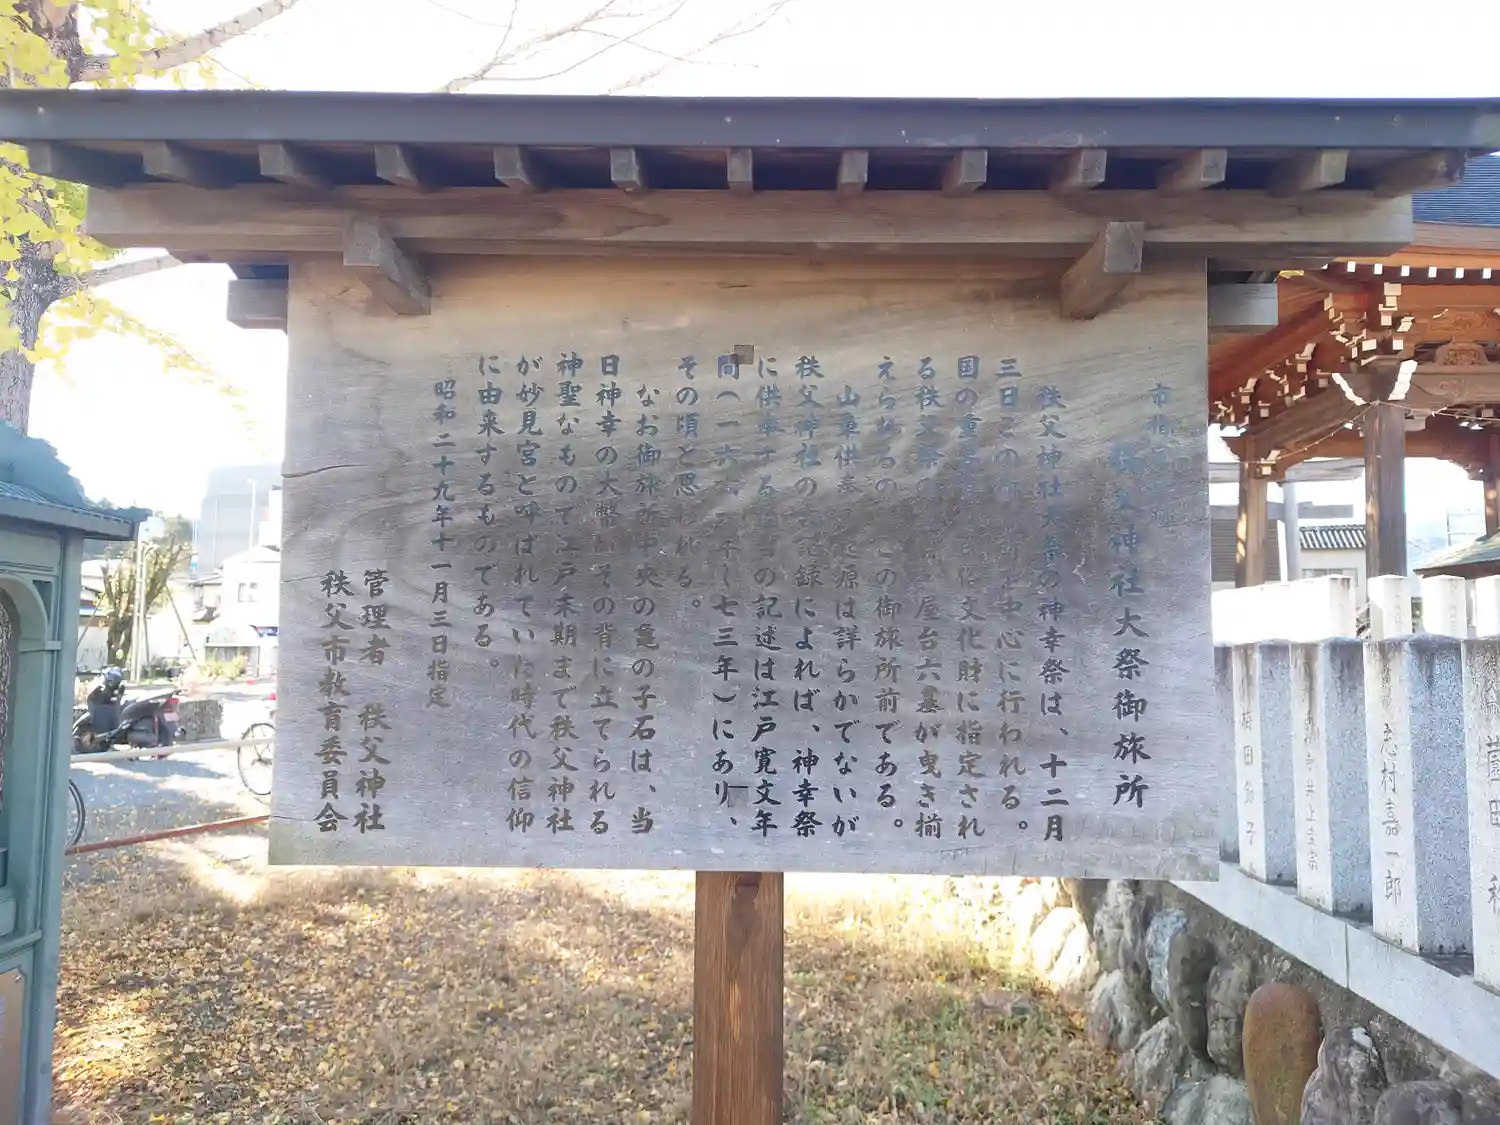 市指
秩父神社大祭御旅所
秩父神社大祭の神幸祭は、十二月
三日 中心に行われる。
国の重 文化財に指定され
る秩父祭の 屋台六基が曳き揃
えらなるの この御旅所前である。
山車供奉 起源は詳らかでないが
秩父神社の 記録によれば、神幸祭
に供奉する の記述は江戸寛文年
間（一六六 〜七三年）にあり、
その頃と思われる。
なお御旅所中央の亀の子石は、当
日神幸の大幣 その背に立てられる
神聖なもので江戸末期まで秩父神社
が妙見宮と呼ばれていた時代の信仰
に由来するものである。
昭和二十九年十一月三日指定
管理者 秩父神社
秩父市教育委員会
志村嘉一郎